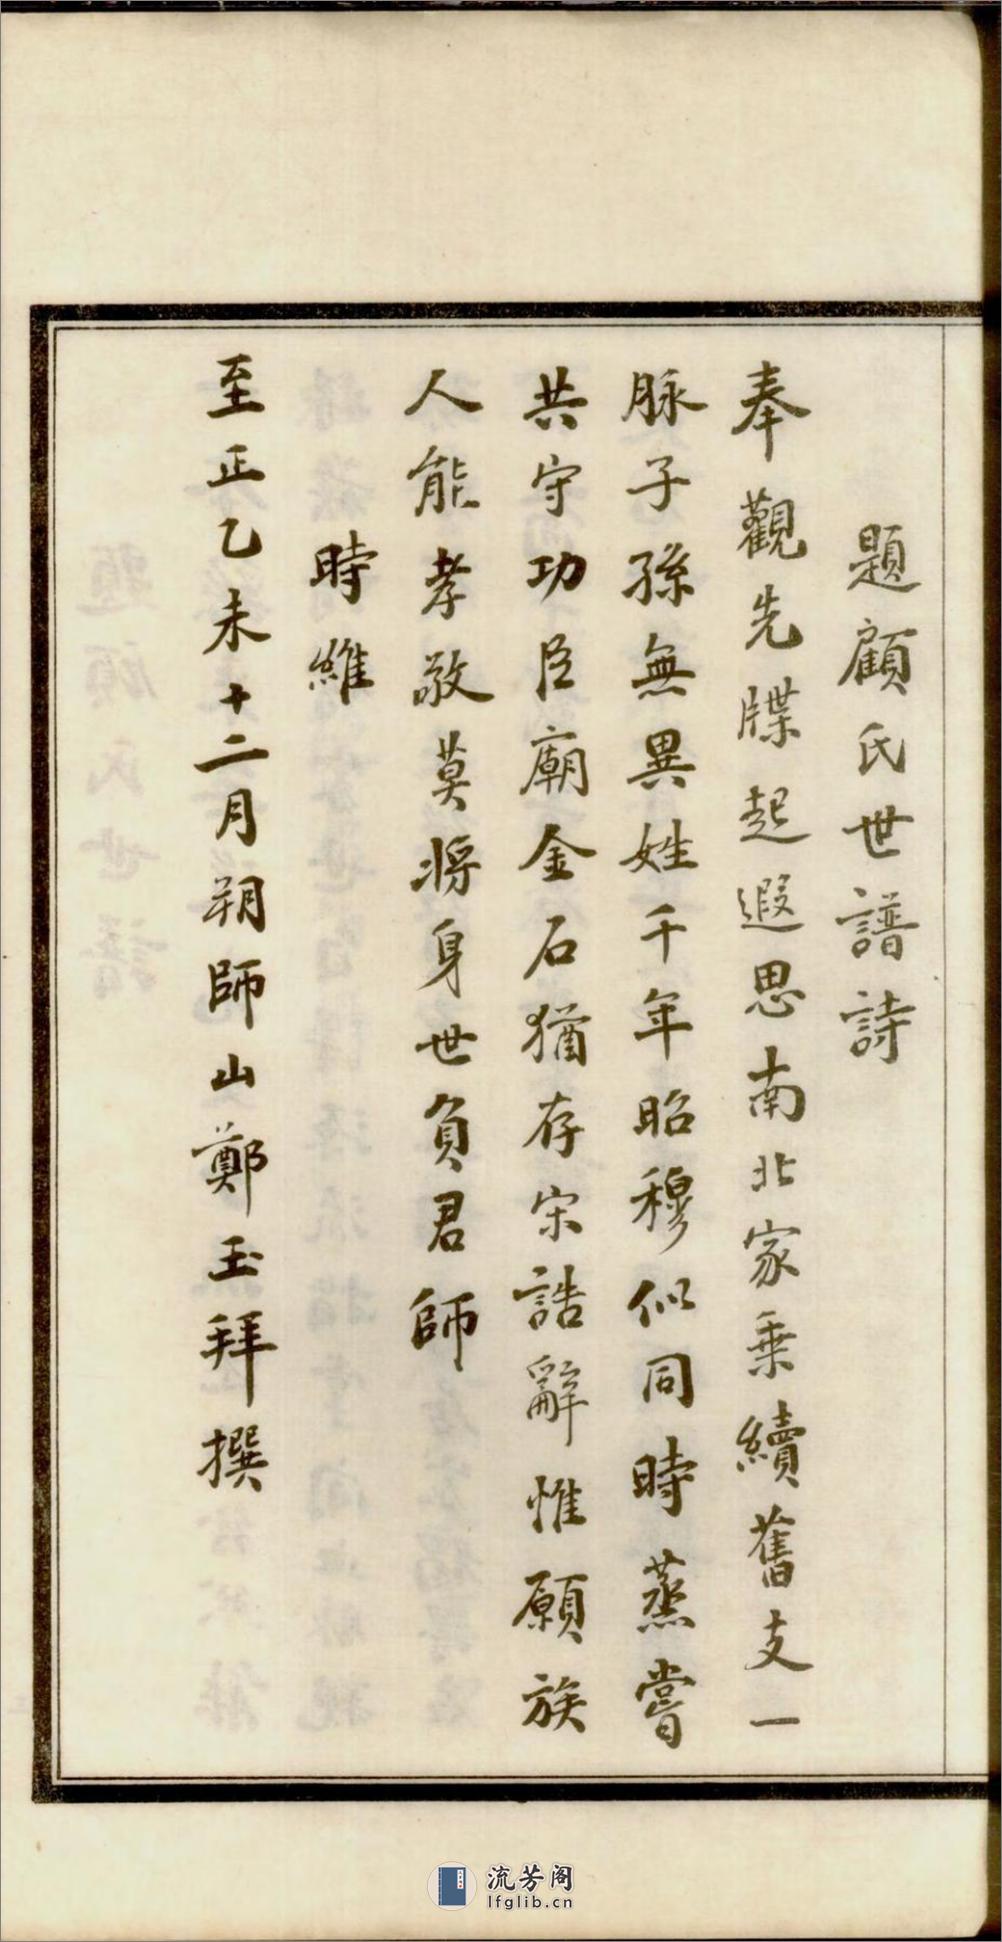 題顧氏世譜詩
奉觀先牒起遐思南北家乗續舊支一
脉子孫無異姓千年昭穆似同時蒸嘗
共守功臣廟金石猶存宋誥辭惟願族
人能孝敬莫將身世負君師
時維
至正乙未十二月朔師山鄭玉拜撰
流芳阁
lfglib.cn